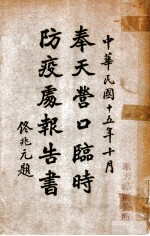 中華民國十五年十月
奉天營口臨時
防疫處報告書
佟兆元題